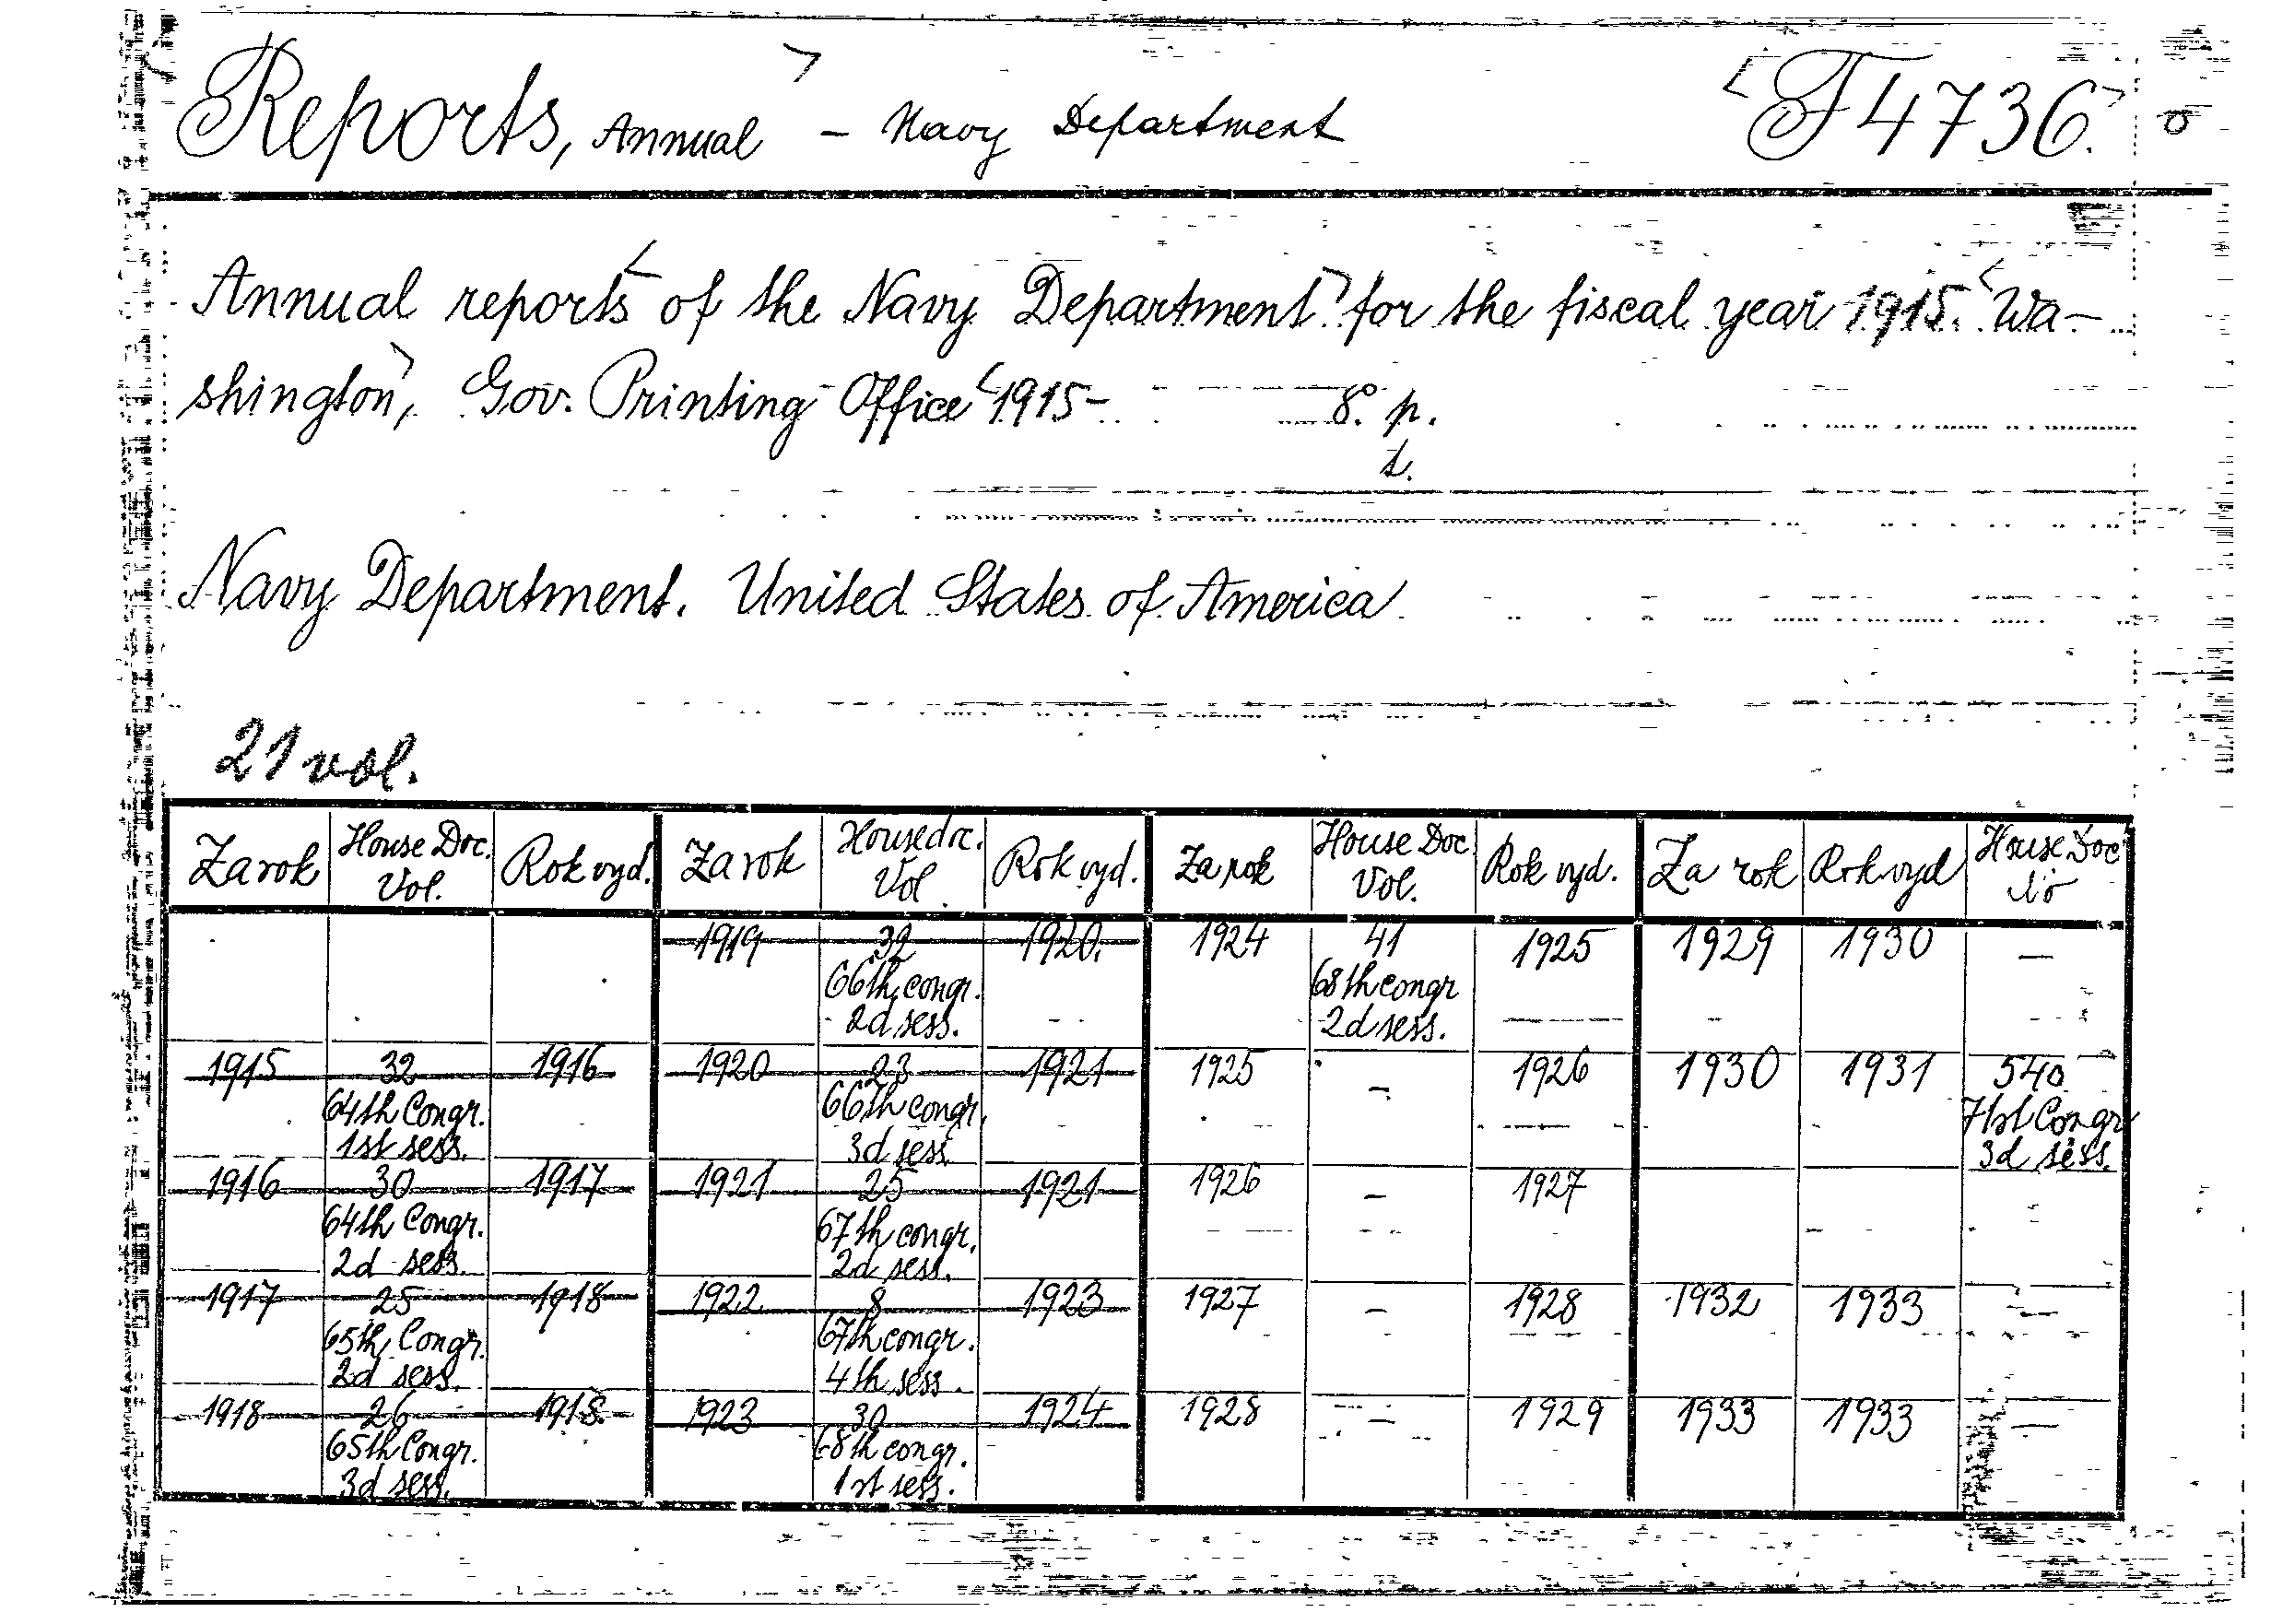 Reports, Annual - Navy Department F 4736.
Annual reports of the Navy Department for the fiscal year 1915. Wa-
shington, Gov. Printing Office 1915- 8° p.
t.
Navy Department. United States of America
21 vol.
Za rok House Doc. Vol. Rok vyd. Za rok House doc. Vol. Rok vyd. Za rok House Doc. Vol. Rok vyd. Za rok Rok vyd House Doc
1919 32 1920. 1924 41 1925 1929 1930 —
66th congr. 68th congr
2d sess. 2d sess.
1915 32 1916 1920 23 1921 1925 — 1926 1930 1931 540
64th Congr. 66th congr. 71st Congr
1st sess. 3d sess. 3d sess.
1916 30 1917 1921 25 1921 1926 — 1927
64th Congr. 67th congr.
2d sess. 2d sess.
1917 25 1918 1922 8 1923 1927 — 1928 1932 1933 —
65th Congr. 67th congr.
2d sess. 4th sess.
1918 26 1918. 1923 30 1924 1928 — 1929 1933 1933 —
65th Congr. 68th congr.
3d sess. 1st sess.